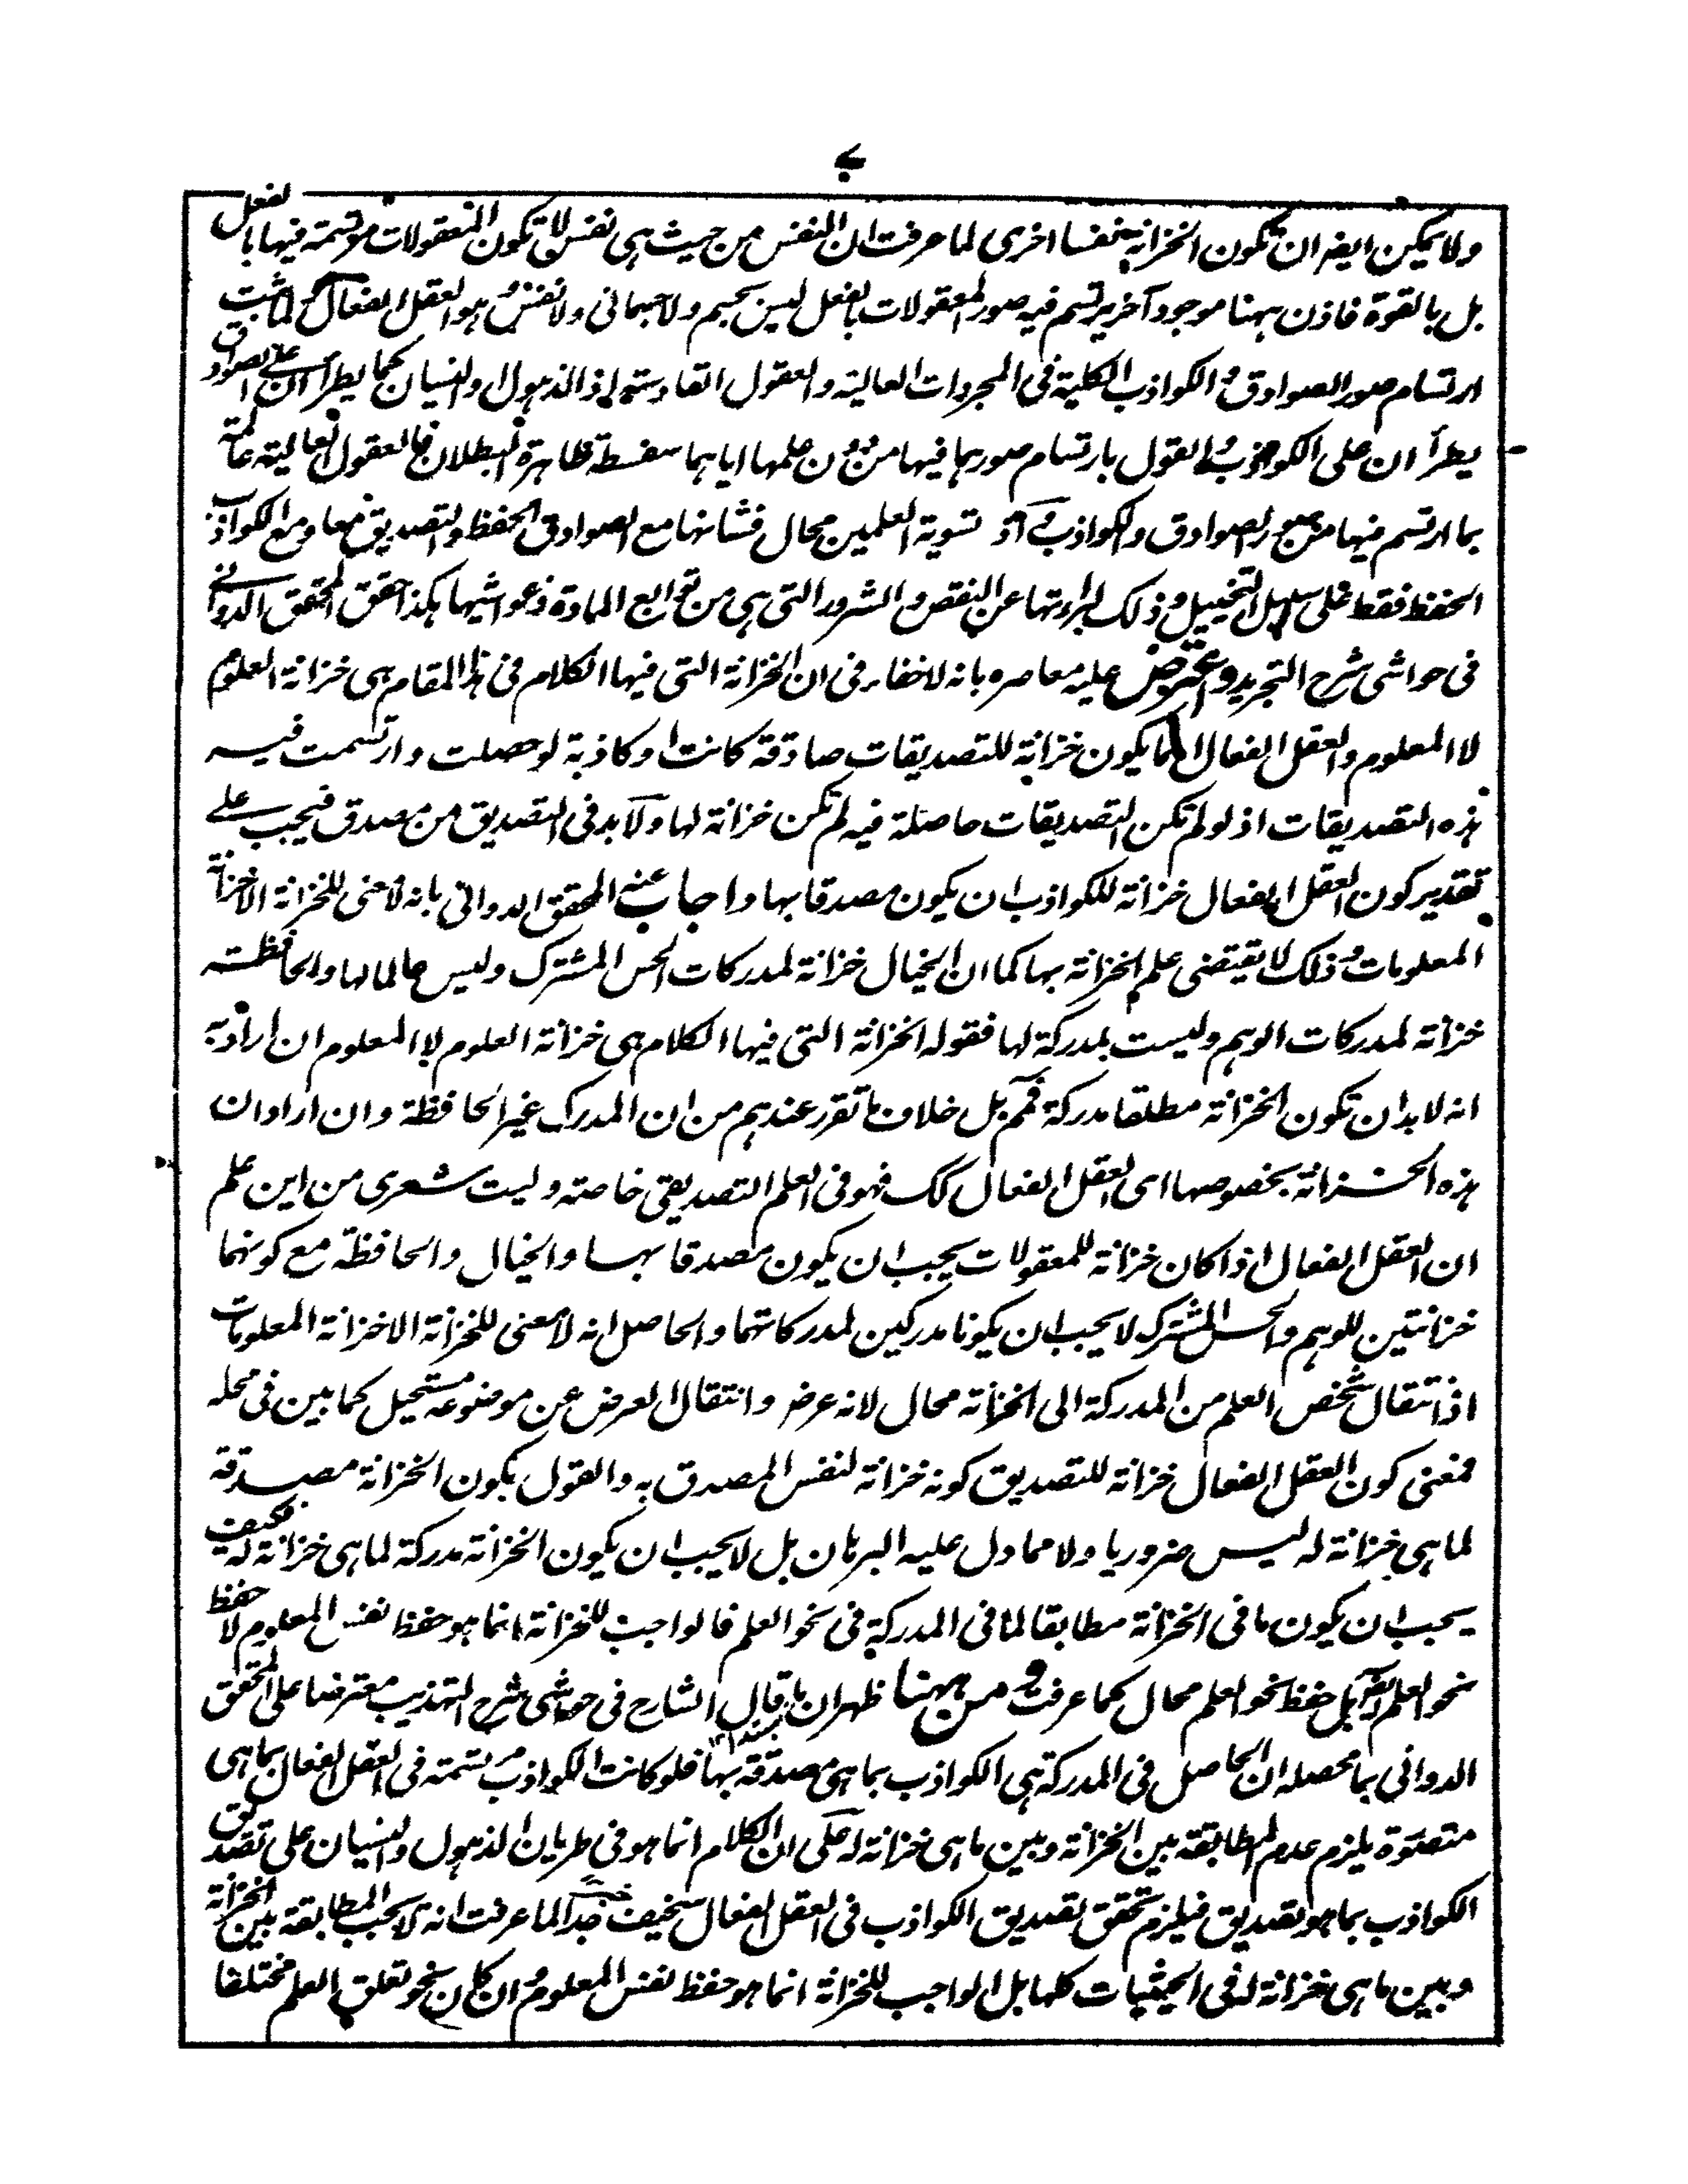 ولا یمکن ایضہ ان تکون الخزانۃ نفسا اخری لما عرفت ان النفس من حیث ہی نفس لا تکون المعقولات مرتسمۃ فیہا بالفعل
بل بالقوۃ فاذن ہہنا موجود آخر یرتسم فیہ صور المعقولات بالفعل لیس بجسم ولا جسمانی ولا نفس وہو العقل الفعال لما ثبت
ارتسام صور الصوادق و الکواذب الکلیۃ فی المجردات العالیۃ والعقول القادسۃ اذ الذہول والنسیان کما یطرأان علی الصوادق
یطرأان علی الکواذب والقول بارتسام صورہما فیہا من دون علمہا ایاہما سفسطۃ ظاہرۃ البطلان فالعقول العالیۃ عالمۃ
بما ارتسم فیہا من صور الصوادق والکواذب و اذ تسویۃ العلمین محال فشانہا مع الصوادق الحفظ والتصدیق معا ومع الکواذب
الحفظ فقط علی سبیل التخییل وذلک لبراءتہا عن النقص و الشرور التی ہی من توابع المادۃ وغواشیہا ہکذا حقق المحقق الدوانی
فی حواشی شرح التجرید واعترض علیہ معاصرہ بانہ لا خفاء فی ان الخزانۃ التی فیہا الکلام فی ہذا المقام ہی خزانۃ العلوم
لا المعلوم والعقل الفعال انما یکون خزانۃ للتصدیقات صادقۃ کانت او کاذبۃ لو حصلت وارتسمت فیہ
ہذہ التصدیقات اذ لو لم تکن التصدیقات حاصلۃ فیہ لم تکن خزانۃ لہا ولا بد فی التصدیق من مصدق فیجب علی
تقدیر کون العقل الفعال خزانۃ للکواذب ان یکون مصدقا بہا واجاب عنہ المحقق الدوانی بانہ لا معنی للخزانۃ الا خزانۃ
المعلومات وذلک لا یقتضی علم الخزانۃ بہا کما ان الخیال خزانۃ لمدرکات الحس المشترک ولیس عالما لہا والحافظۃ
خزانۃ لمدرکات الوہم ولیست بمدرکۃ لہا فقولہ الخزانۃ التی فیہا الکلام ہی خزانۃ العلوم لا المعلوم ان اراد بہ
انہ لا بد ان تکون الخزانۃ مطلقا مدرکۃ فمم بل خلاف ما تقرر عندہم من ان المدرک غیر الحافظۃ وان اراد ان
ہذہ الخزانۃ بخصوصہا ای العقل الفعال کک فہو فی العلم التصدیقی خاصۃ ولیت شعری من این علم
ان العقل الفعال اذا کان خزانۃ للمعقولات یجب ان یکون مصدقا بہا والخیال والحافظۃ مع کونہما
خزانتین للوہم والحس المشترک لا یجب ان یکونا مدرکین لمدرکاتہما والحاصل انہ لا معنی للخزانۃ الا خزانۃ المعلومات
اذ انتقال شخص العلم من المدرکۃ الی الخزانۃ محال لانہ عرض وانتقال العرض عن موضوعہ مستحیل کما بین فی محلہ
فمعنی کون العقل الفعال خزانۃ للتصدیق کونہ خزانۃ لنفس المصدق بہ والقول بکون الخزانۃ مصدقۃ
لما ہی خزانۃ لہ لیس ضروریا ولا مما دل علیہ البرہان بل لا یجب ان یکون الخزانۃ مدرکۃ لما ہی خزانۃ لہ فکیف
یجب ان یکون ما فی الخزانۃ مطابقا لما فی المدرکۃ فی نحو العلم فالواجب للخزانۃ انما ہو حفظ نفس المعلوم لا حفظ
نحو العلم ایضہ بل حفظ نحو العلم محال کما عرفت ومن ہہنا ظہر ان ما قال الشارح فی حواشی شرح التہذیب معترضا علی المحقق
الدوانی بما محصلہ ان الحاصل فی المدرکۃ ہی الکواذب بما ہی مصدقۃ بہا فلو کانت الکواذب مرتسمۃ فی العقل الفعال بما ہی
متصورۃ یلزم عدم المطابقۃ بین الخزانۃ وبین ما ہی خزانۃ لہ علی ان الکلام انما ہو فی طریان الذہول والنسیان علی تصدیق
الکواذب بما ہو تصدیق فیلزم تحقق تصدیق الکواذب فی العقل الفعال سخیف جدا لما عرفت انہ لا یجب المطابقۃ بین الخزانۃ
وبین ما ہی خزانۃ لہ فی الحیثیات کلہا بل الواجب للخزانۃ انما ہو حفظ نفس المعلوم و ان کان نحو تعلق العلم مختلفا